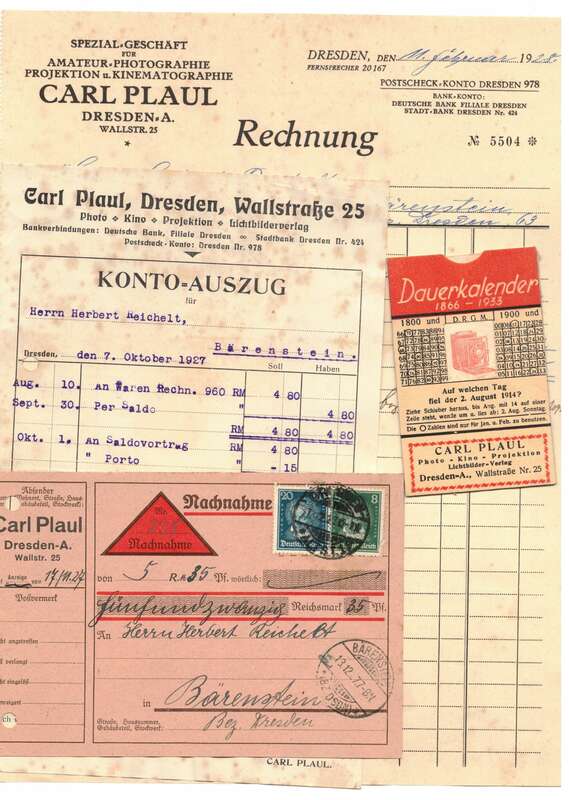 SPEZIAL-GESCHÄFT
FÜR
AMATEUR-PHOTOGRAPHIE
PROJEKTION u. KINEMATOGRAPHIE
CARL PLAUL
DRESDEN-A.
WALLSTR. 25
DRESDEN, DEN 11. Februar 1928.
FERNSPRECHER 20167
POSTSCHECK-KONTO DRESDEN 978
BANK-KONTO:
DEUTSCHE BANK FILIALE DRESDEN
STADT-BANK DRESDEN Nr. 424
Rechnung
№ 5504 *
Bärenstein,
Dresden 63
Carl Plaul, Dresden, Wallstraße 25
Photo • Kino • Projektion • Lichtbilderverlag
Bankverbindungen: Deutsche Bank, Filiale Dresden — Stadtbank Dresden Nr. 424
Postscheck-Konto: Dresden Nr. 978
KONTO-AUSZUG
für
Herrn Herbert Reichelt,
Bärenstein.
Dresden, den 7. Oktober 1927
Soll Haben
Aug. 10. An Waren Rechn. 960 RM 4 80
Sept. 30. Per Saldo 4 80
RM 4 80 4 80
Okt. 1. An Saldovortrag RM 4 80
" Porto " - 15
Dauerkalender
1866 - 1933
1800 und D.R.G.M. 1900 und
Auf welchen Tag
fiel der 2. August 1914?
Ziehe Schieber heraus, bis Aug. mit 14 auf einer
Zeile steht, wende um u. lies ab: 2. Aug. Sonntag.
Die O Zahlen sind nur für Jan. u. Feb. zu benutzen.
CARL PLAUL
Photo - Kino - Projektion
Lichtbilder-Verlag
Dresden-A., Wallstraße Nr. 25
Absender
Carl Plaul
Dresden-A.
Wallstr. 25
Anzeige
vom 17/11.27
Postvermerk
nicht angetroffen
verlangt
nicht eingelöst
Nachnahme
Nachnahme
20 8
Deutsches Reich
von 5 RM 35 Pf. wörtlich:
fünfundzwanzig Reichsmark 35 Pf.
An Herrn Herbert Reichelt
in Bärenstein
Bez. Dresden
Straße, Hausnummer,
Gebäudeteil, Stockwerk
BÄRENSTEIN
13.12.27
CARL PLAUL.